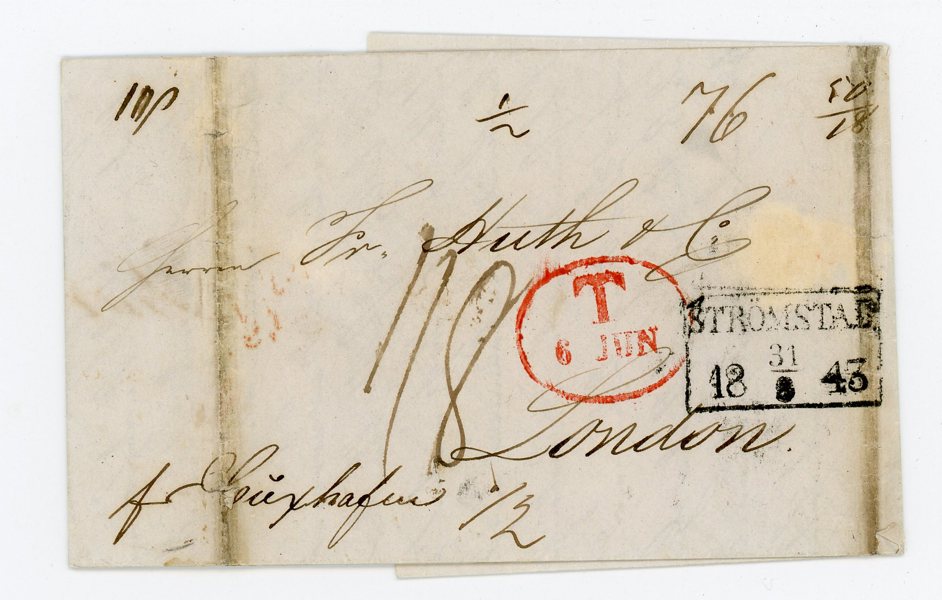 1/2 76
Herren Fr. Huth & Co
118
T
6 JUN
STRÖMSTAD
18 31/8 43
London.
fr Cuxhafen 1/2